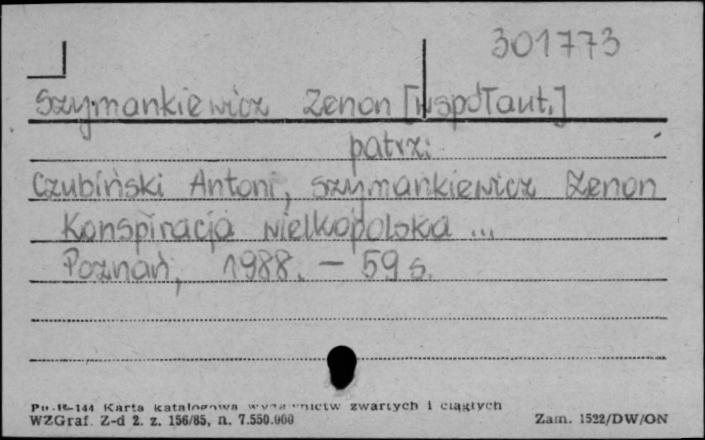 301773
Szymankiewicz Zenon [współaut.]
patrz:
Czubiński Antoni, Szymankiewicz Zenon
Konspiracja wielkopolska ...
Poznań, 1988. — 59 s.
Pu-B-144 Karta katalogowa wydawnictw zwartych i ciągłych
WZGraf. Z-d 2. z. 156/85, n. 7.550.000 Zam. 1522/DW/ON